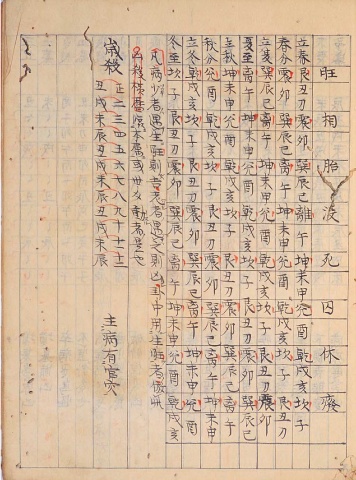 旺 相 胎 沒 死 囚 休 廢
立春艮丑刀震卯巽辰巳離午坤未申兌酉乾戌亥坎子
春分震卯巽辰巳离午坤未申兌酉乾戌亥坎子艮丑刀
立夏巽辰巳离午坤未申兌酉乾戌亥坎子艮丑刀震卯
夏至离午坤未申兌酉乾戌亥坎子艮丑刀震卯巽辰巳
立秋坤未申兌酉乾戌亥坎子艮丑刀震卯巽辰巳离午
秋分兌酉乾戌亥坎子艮丑刀震卯巽辰巳离午坤未申
立冬乾戌亥坎子艮丑刀震卯巽辰巳离午坤未申兌酉
冬至坎子艮丑刀震卯巽辰巳离午坤未申兌酉乾戌亥
凡病少者遇生旺則吉老者遇之則凶卦中用生旺者
凶殺
歲殺 正二三四五六七八九十十一十二
丑戌未辰丑戌未辰丑戌未辰
主病有官